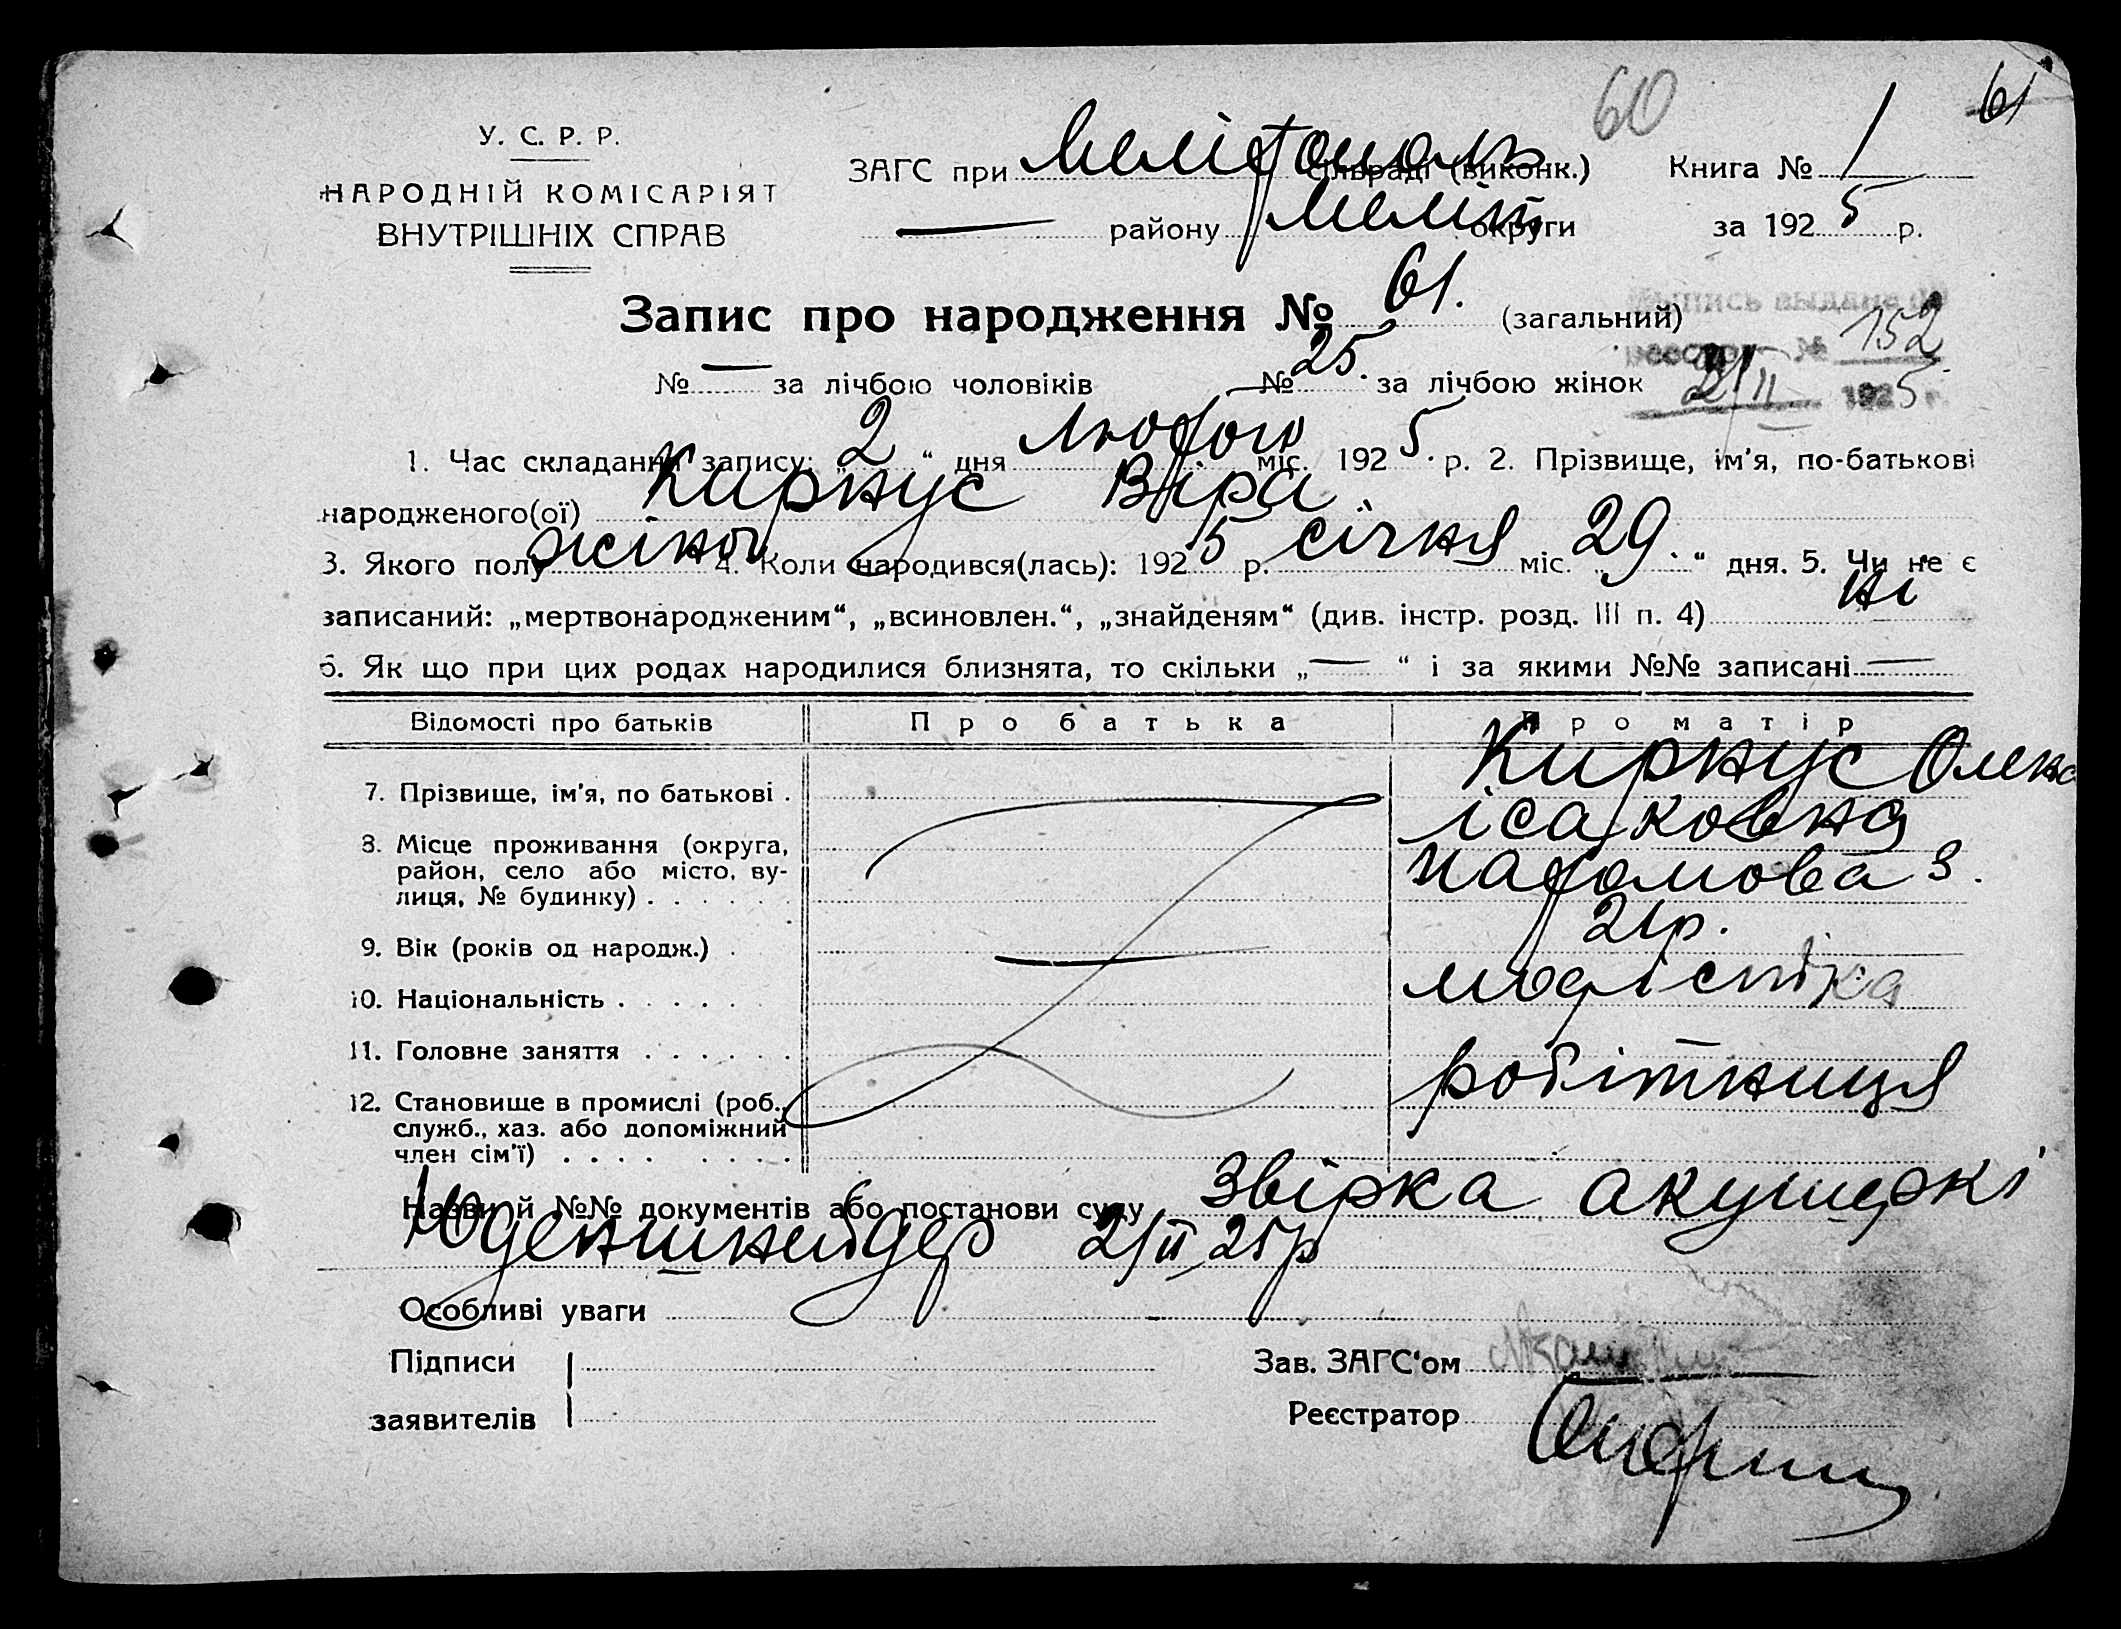 60 61
У. С. Р. Р.
НАРОДНІЙ КОМІСАРІЯТ
ВНУТРІШНІХ СПРАВ
ЗАГС при Мелітополь сільраді (виконк.) Книга № 1
— району Меліт округи за 1925 р.
Запис про народження № 61. (загальний)
Выпись выдана
№ 152
2/II 1925 г.
№ — за лічбою чоловіків № 25. за лічбою жінок
1. Час складання запису: „2“ дня лютого міс. 1925 р. 2. Прізвище, ім'я, по-батькові
народженого(ої) Киркус Віра
3. Якого полу жіноч 4. Коли народився(лась): 1925 р. січня міс. „29.“ дня. 5. Чи не є
записаний: „мертвонародженим“, „всиновлен.“, „знайденям“ (див. інстр. розд. III п. 4) ні
6. Як що при цих родах народилися близнята, то скільки „—“ і за якими №№ записані —
Відомості про батьків Про батька Про матір
7. Прізвище, ім'я, по батькові . Киркус Олена
Ісаковна
8. Місце проживання (округа,
район, село або місто, ву-
лиця, № будинку) . . . . . . 3.
9. Вік (років од народж.) . — 21р.
10. Національність . . . . . .
модістка
11. Головне заняття . . . . . .
12. Становище в промислі (роб., робітниця
служб., хаз. або допоміжний
член сім'ї) . . . . . . . .
Назви й №№ документів або постанови суду Звірка акушеркі
Юденшнейдер 2/II 25р
Особливі уваги
Підписи
заявителів
Зав. ЗАГС'ом
Реєстратор